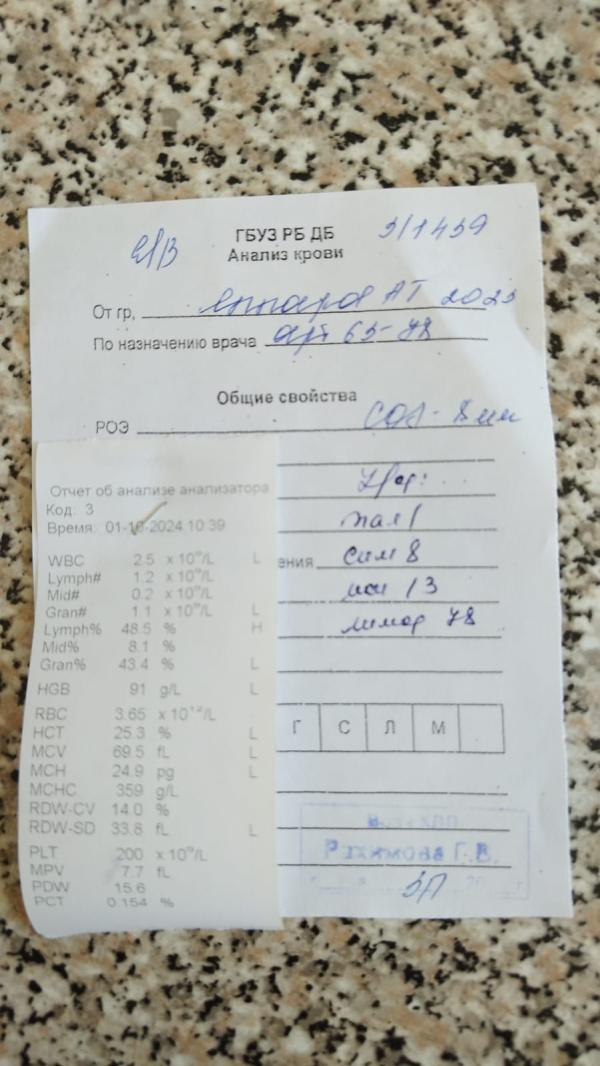 ГБУЗ РБ ДБ
3/1439
Анализ крови
От гр, АТ 2023
По назначению врача
Общие свойства
РОЭ СОЭ - 8 мм
Отчет об анализе анализатора
Код: 3
Время: 01-10-2024 10:39
WBC 2.5 x 10⁹/L L
Lymph# 1.2 x 10⁹/L
Mid# 0.2 x 10⁹/L
Gran# 1.1 x 10⁹/L L
Lymph% 48.5 % H
Mid% 8.1 %
Gran% 43.4 % L
HGB 91 g/L L
RBC 3.65 x 10¹²/L
HCT 25.3 % L
MCV 69.5 fL L
MCH 24.9 pg L
MCHC 359 g/L
RDW-CV 14.0 %
RDW-SD 33.8 fL L
PLT 200 x 10⁹/L
MPV 7.7 fL
PDW 15.6
PCT 0.154 %
пал 1
ения сегм 8
мон 13
лимф 78
Г С Л М
Рахимова Г.В.